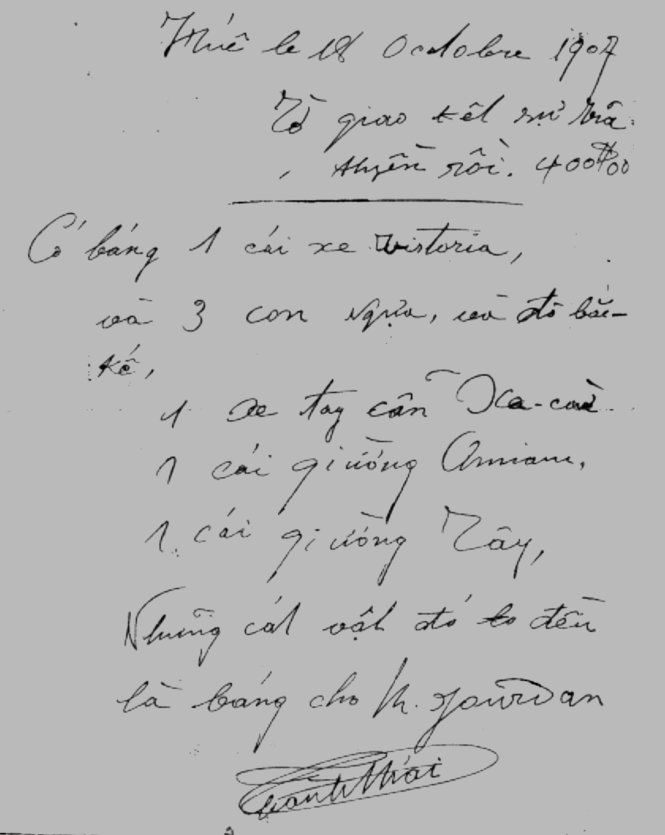 Huê le 18 Octobre 1907
Tờ giao kêt sự trã
thyền rồi. 400$00
Có báng 1 cái xe victoria,
và 3 con ngựa, và đồ bắc-
kế,
1 xe tay cẩn Xa-cừ.
1 cái giường Annam,
1 cái giường Tây,
Nhưng cát vật đó to đều
là báng cho M. Jourdan
Thành Thái